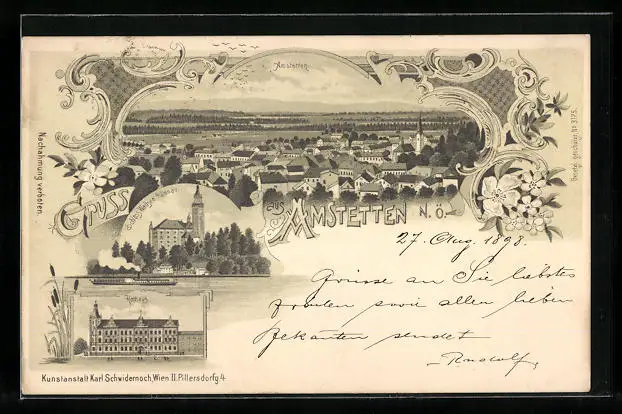 Amstetten.
Nachahmung verboten.
Gesetzl. geschützt No 3175.
Gruss
aus
Amstetten N. Ö.
27. Aug. 1898.
Grüsse an Sie liebstes
sowie allen lieben
Bekanten sendet
Rudolf,
Rathaus
Kunstanstalt Karl Schwidernoch, Wien II. Pillersdorfg. 4